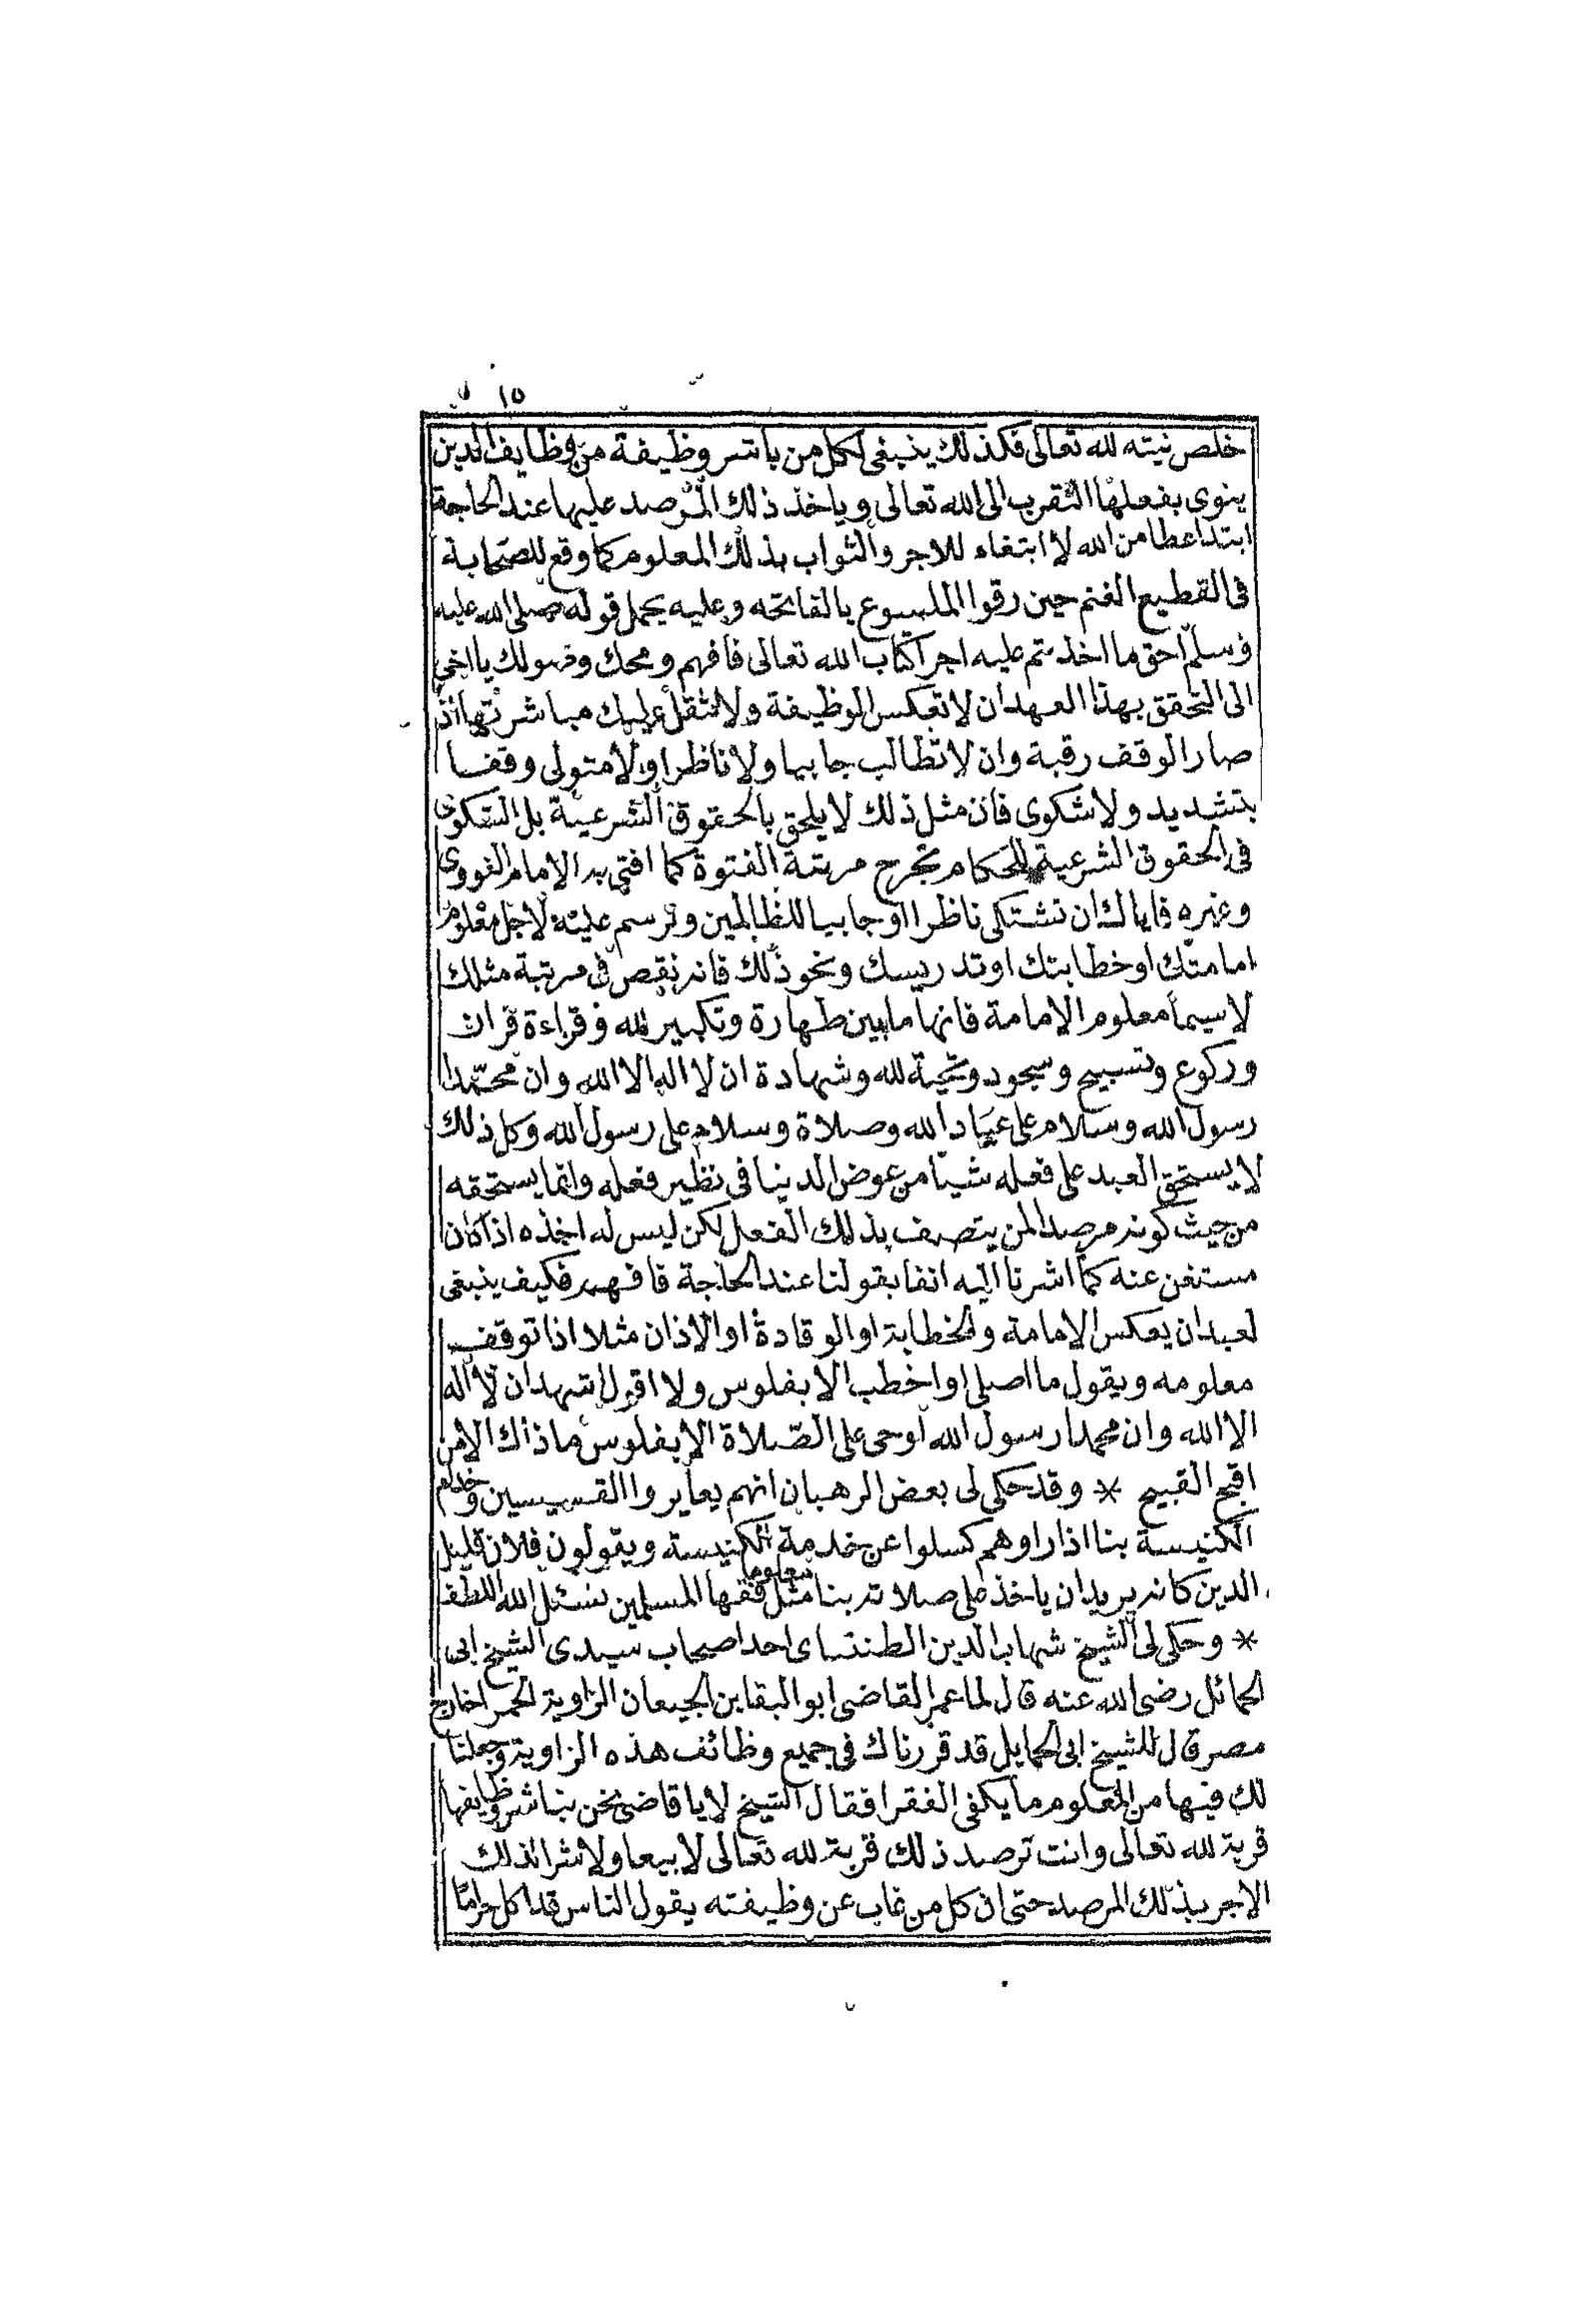 ١٥
خلص نيته لله تعالى فكذلك ينبغى لكل من باشر وظيفة من وظايف الدين
ينوى بفعلها التقرب الى الله تعالى وياخذ ذلك المرصد عليها عند الحاجة
ابتداعطا من الله لا ابتغاء للاجر والثواب بذلك المعلوم كما وقع للصحابة
فى القطيع الغنم حين رقوا الملسوع بالفاتحه وعليه يحمل قوله صلى الله عليه
وسلم احق ما اخذ تم عليه اجرا كتاب الله تعالى فافهم ومحك وصولك يا اخى
الى التحقق بهذا العهد ان لا تعكس الوظيفة ولا تثقل عليك مباشرتها اذ
صار الوقف رقبة وان لا تطالب جابيا ولا ناظرا ولا متولى وقفا
بتشديد ولا شكوى فان مثل ذلك لا يلحق بالحقوق الشرعية بل الشكوى
فى الحقوق الشرعية للحكام تجرح مرتبة الفتوة كما افتى به الامام النووى
وغيره فاياك ان تشتكى ناظرا اوجابيا للظالمين وترسم عليه لاجل معلوم
امامتك اوخطابتك اوتدريسك ونحو ذلك فانه نقص فى مرتبة مثلك
لا سيما معلوم الامامة فانها ما بين طهارة وتكبير لله وقراءة قران
وركوع وتسبيح وسجود وتحية لله وشهادة ان لا اله الا الله وان محمدا
رسول الله وسلام على عباد الله وصلاة وسلام على رسول الله وكل ذلك
لا يستحق العبد على فعله شيئا من عوض الدنيا فى نظير فعله وانما يستحقه
من حيث كونه مرصدا لمن يتصف بذلك الفعل لكن ليس له اخذه اذا كان
مستغن عنه كما اشرنا اليه انفا بقولنا عند الحاجة فافهم فكيف ينبغى
لعبد ان يعكس الامامة والخطابة او الوقادة او الاذان مثلا اذا توقف
معلومه ويقول ما اصلى او اخطب الا بفلوس ولا اقول اشهد ان لا اله
الا الله وان محمدا رسول الله اوحى على الصلاة الا بفلوس ما ذاك الا من
اقبح القبيح * وقد حكى لى بعض الرهبان انهم يعايروا القسيسين وخدام
الكنيسة بنا اذا راوهم كسلوا عن خدمة الكنيسة ويقولون فلان قليل
الدين كانه يريد ان ياخذ على صلاته بنا معلوما مثل فقها المسلمين نسئل الله اللطف
* وحكى لى الشيخ شهاب الدين الطنتساى احد اصحاب سيدى الشيخ ابى
الحمائل رضى الله عنه قال لما عمر القاضى ابو البقا بن الجيعان الزاوية الحمرا خارج
مصر قال للشيخ ابى الحمايل قد قررناك فى جميع وظائف هذه الزاوية وجعلنا
لك فيها من المعلوم ما يكفى الفقرا فقال الشيخ لا يا قاضى نحن نباشر وظايفها
قربة لله تعالى وانت ترصد ذلك قربة لله تعالى لا بيعا ولا شرا لذلك
الاجر بذلك المرصد حتى ان كل من غاب عن وظيفته يقول الناس قد اكل حراما